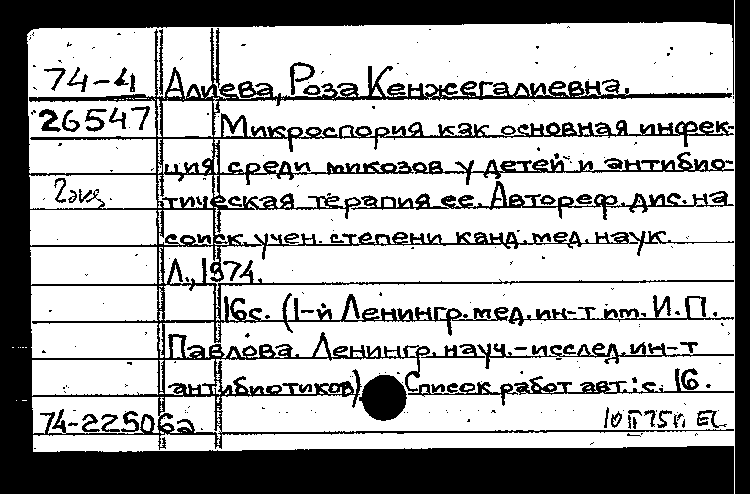 74-4 Алиева, Роза Кенжегалиевна.
26547 Микроспория как основная инфек-
ция среди микозов у детей и антибио-
2 экз тическая терапия ее. Автореф. дис. на
соиск. учен. степени канд. мед. наук.
Л., 1974.
16с. (1-й Ленингр. мед. ин-т им. И. П.
Павлова. Ленингр. науч.-исслед. ин-т
антибиотиков) Список работ авт.: с. 16.
74-22506а 10 II 75г.